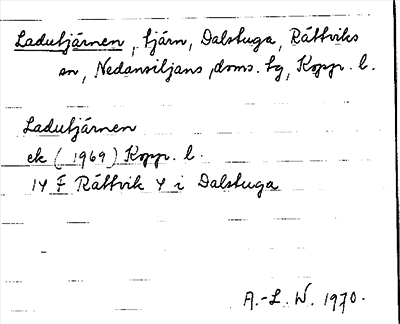 Ladutjärnen, tjärn, Dalstuga, Rättviks
sn, Nedansiljans doms. tg, Kopp. l.
Ladutjärnen
ek (1969) Kopp. l.
14 F Rättvik 4 i Dalstuga
A.-L. W. 1970.